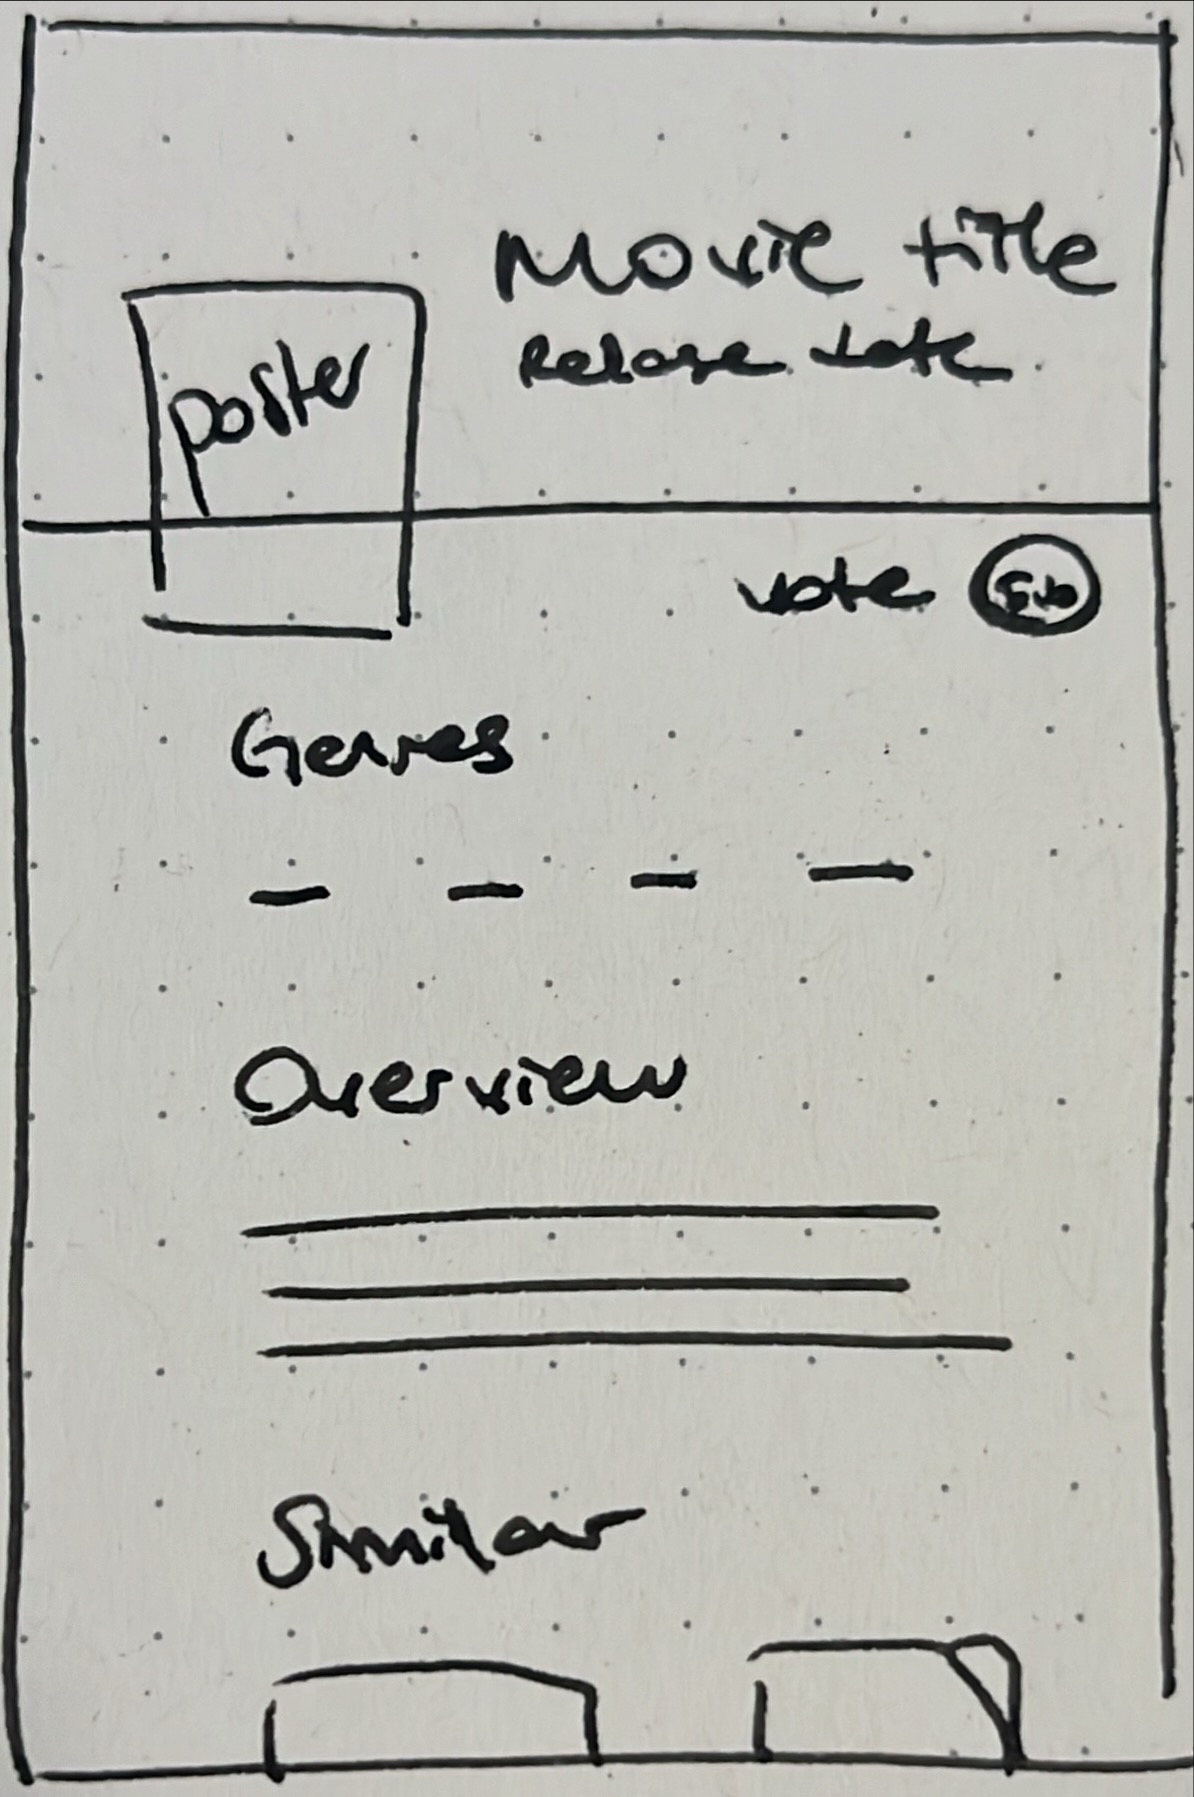 Movie title
Release date
poster
vote
Genres
Overview
Similar